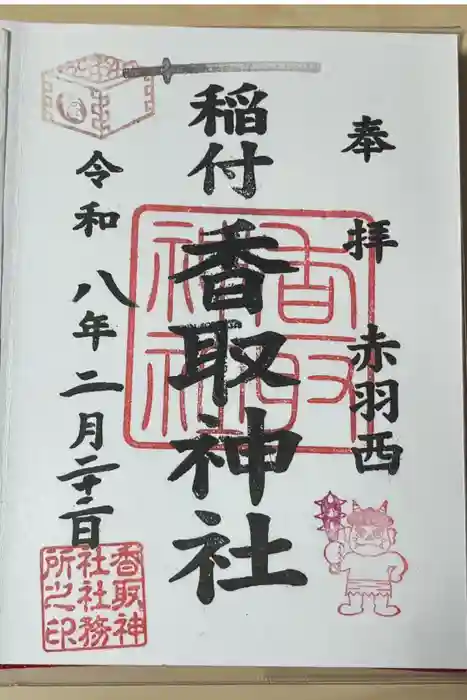 奉拝
赤羽西
稲付
香取神社
香取
神社
令和八年二月二十二日
香取神
社社務
所之印